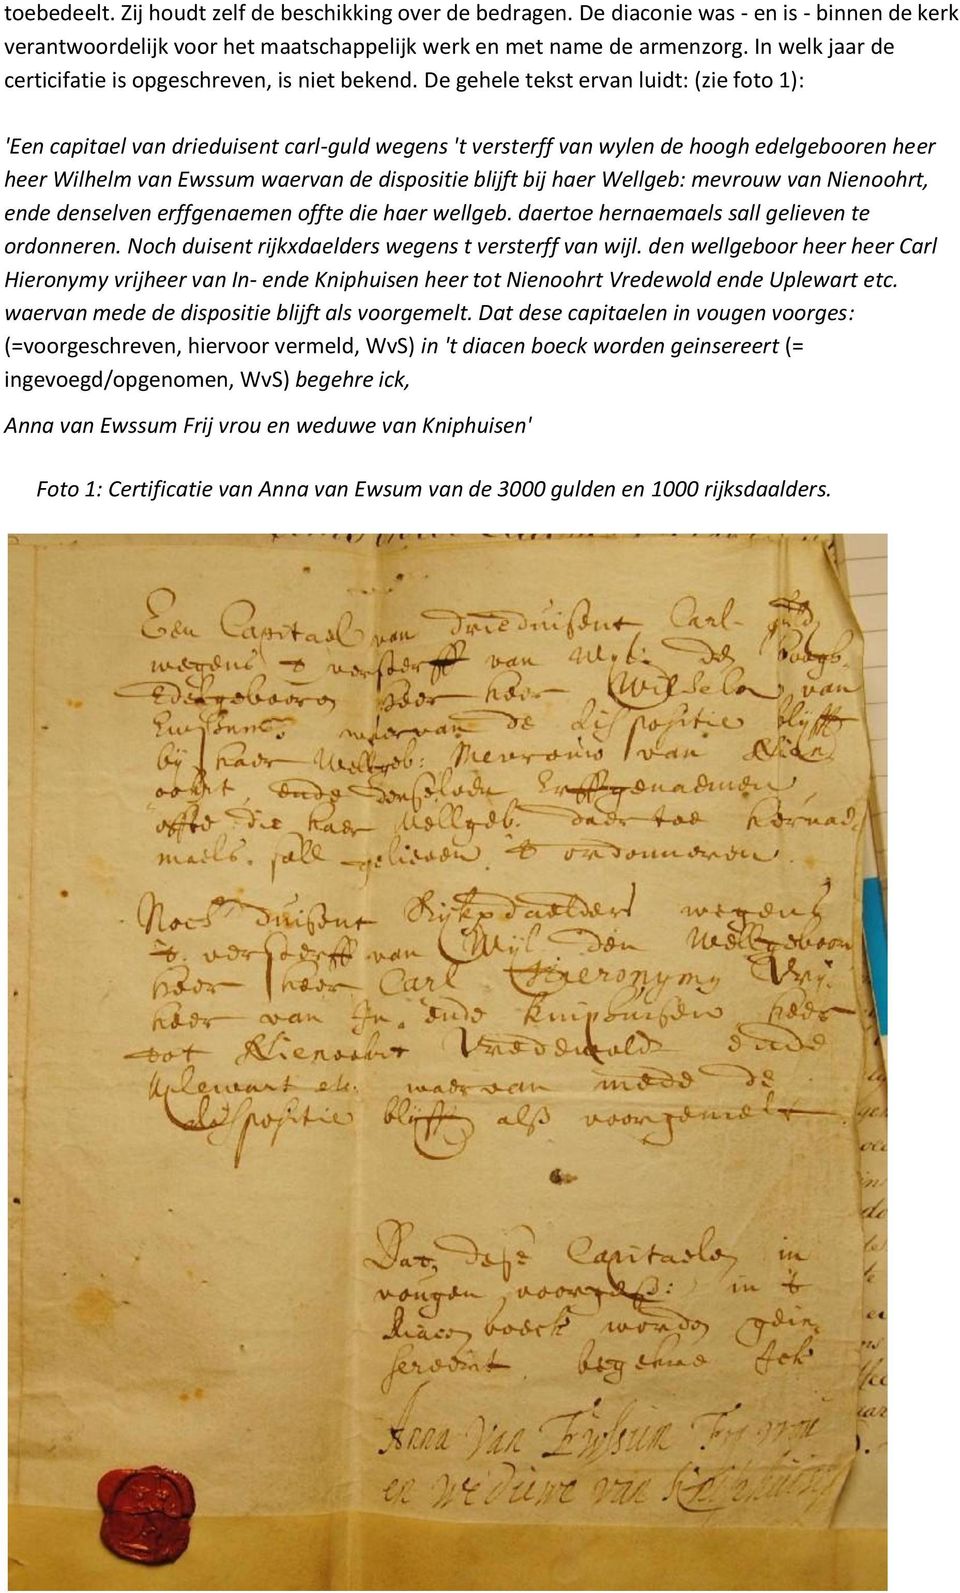 toebedeelt. Zij houdt zelf de beschikking over de bedragen. De diaconie was - en is - binnen de kerk
verantwoordelijk voor het maatschappelijk werk en met name de armenzorg. In welk jaar de
certicifatie is opgeschreven, is niet bekend. De gehele tekst ervan luidt: (zie foto 1):
'Een capitael van drieduisent carl-guld wegens 't versterff van wylen de hoogh edelgebooren heer
heer Wilhelm van Ewssum waervan de dispositie blijft bij haer Wellgeb: mevrouw van Nienoohrt,
ende denselven erffgenaemen offte die haer wellgeb. daertoe hernaemaels sall gelieven te
ordonneren. Noch duisent rijkxdaelders wegens t versterff van wijl. den wellgeboor heer heer Carl
Hieronymy vrijheer van In- ende Kniphuisen heer tot Nienoohrt Vredewold ende Uplewart etc.
waervan mede de dispositie blijft als voorgemelt. Dat dese capitaelen in vougen voorges:
(=voorgeschreven, hiervoor vermeld, WvS) in 't diacen boeck worden geinsereert (=
ingevoegd/opgenomen, WvS) begehre ick,
Anna van Ewssum Frij vrou en weduwe van Kniphuisen'
Foto 1: Certificatie van Anna van Ewsum van de 3000 gulden en 1000 rijksdaalders.
Een Capitael van drieduisent Carl-guld
wegens t versterff van Wyl: de hoogh-
Edelgebooren heer heer Wilhelm van
Ewssum, waervan de dispositie blijfft
bij haer Wellgeb: Mevrouw van Nien
oohrt, ende denselven Erffgenaemen,
offte die haer Wellgeb. daertoe hernae-
maels. sall gelieven t ordonneren.
Noch duisent Rijkxdaelders wegens
t. versterff van Wijl. den Wellgeboor
heer heer Carl Hieronymy Vrij-
heer van In. ende kniphuisen heer
tot Nienoohrt Vredewold ende
Uplewart etc. waervan mede de
dispositie blijfft alß voorgemelt.
Dat dese Capitaelen in
vougen voorgeß: in t
diacen boeck worden gein-
sereert begehre Ick
Anna van Ewssum Frij vrou
en weduwe van Kniphuisen